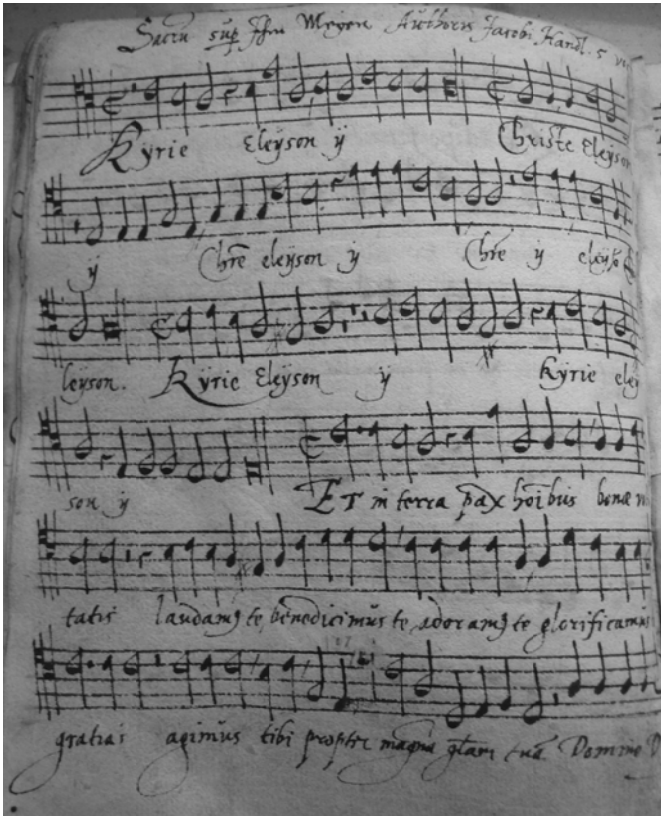 Sacrũ sup Ihm Meyen Authoris Jacobi Handl. 5
Kyrie Eleyson ÿ Christe Eleyson
ÿ Chrẽ eleyson ÿ Chrẽ ÿ
leyson. Kyrie Eleyson ÿ Kyrie eley
son ÿ ET in terra pax hõibus bonæ
tatis laudamꝰ te, benedicimus te, adoramꝰ te glorificamus
gratias agimus tibi propter magnã tuã Domine D